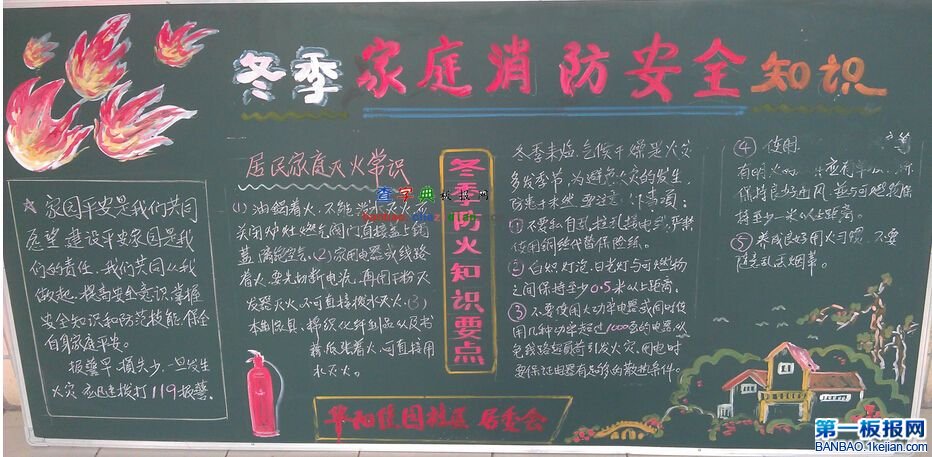 冬季家庭消防安全知识
★家园平安是我们共同
愿望 建设平安家园是我
们的责任。我们共同从我
做起,提高安全意识,掌握
安全知识和防范技能,保全
自身家庭平安。
报警早,损失少,一旦发生
火灾 应迅速拨打119报警。
居民家庭灭火常识
(1)油锅着火,不能泼水
关闭炉灶燃气阀门直接盖上锅
盖,隔绝空气。(2)家用电器或线路
着火,要先切断电流,再用干粉灭
火器灭火,不可直接泼水灭火。(3)
木制家具、棉织化纤制品以及书
籍纸张着火,可直接用
水灭火。
查字典板报网
冬季防火知识要点
冬季来临,气候干燥是火灾
多发季节,为避免火灾的发生
防患于未然 要注意 事项:
①不要私自乱拉乱接电线,严禁
使用铜丝代替保险丝。
②白炽灯泡、日光灯与可燃物
之间保持至少0.5米以上距离。
③不要使用大功率电器或同时使
用几种功率超过1000瓦的电器,以
免线路超负荷引发火灾。用电时
要保证电器有足够的散热条件。
④使用
有明火
保持良好通风,并与可燃物保
持至少一米以上距离
⑤养成良好用火习惯,不要
随意乱丢烟蒂。
华阳佳园社区 居委会
第一板报网
BANBAO.1kejian.com